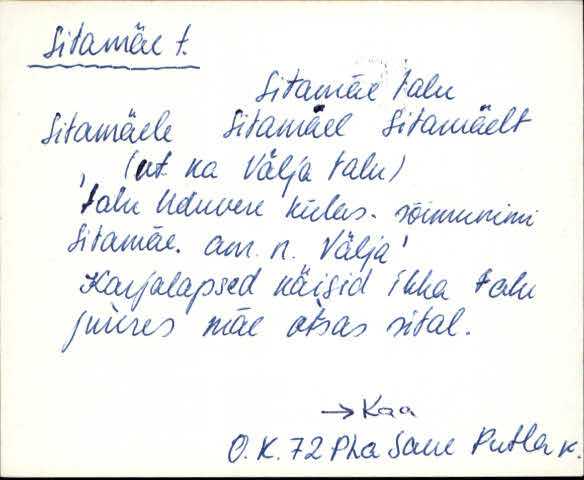 Sitamäe t.
Sitamäe talu
Sitamäele Sitamäel Sitamäelt
, (vt ka Välja talu)
talu Uduvere külas. sõimunimi
Sitamäe. am. n. Välja'
Karjalapsed käisid ikka talu
juures mäe otsas sital.
→ Kaa
O. K. 72 Pha Saue Putla k.